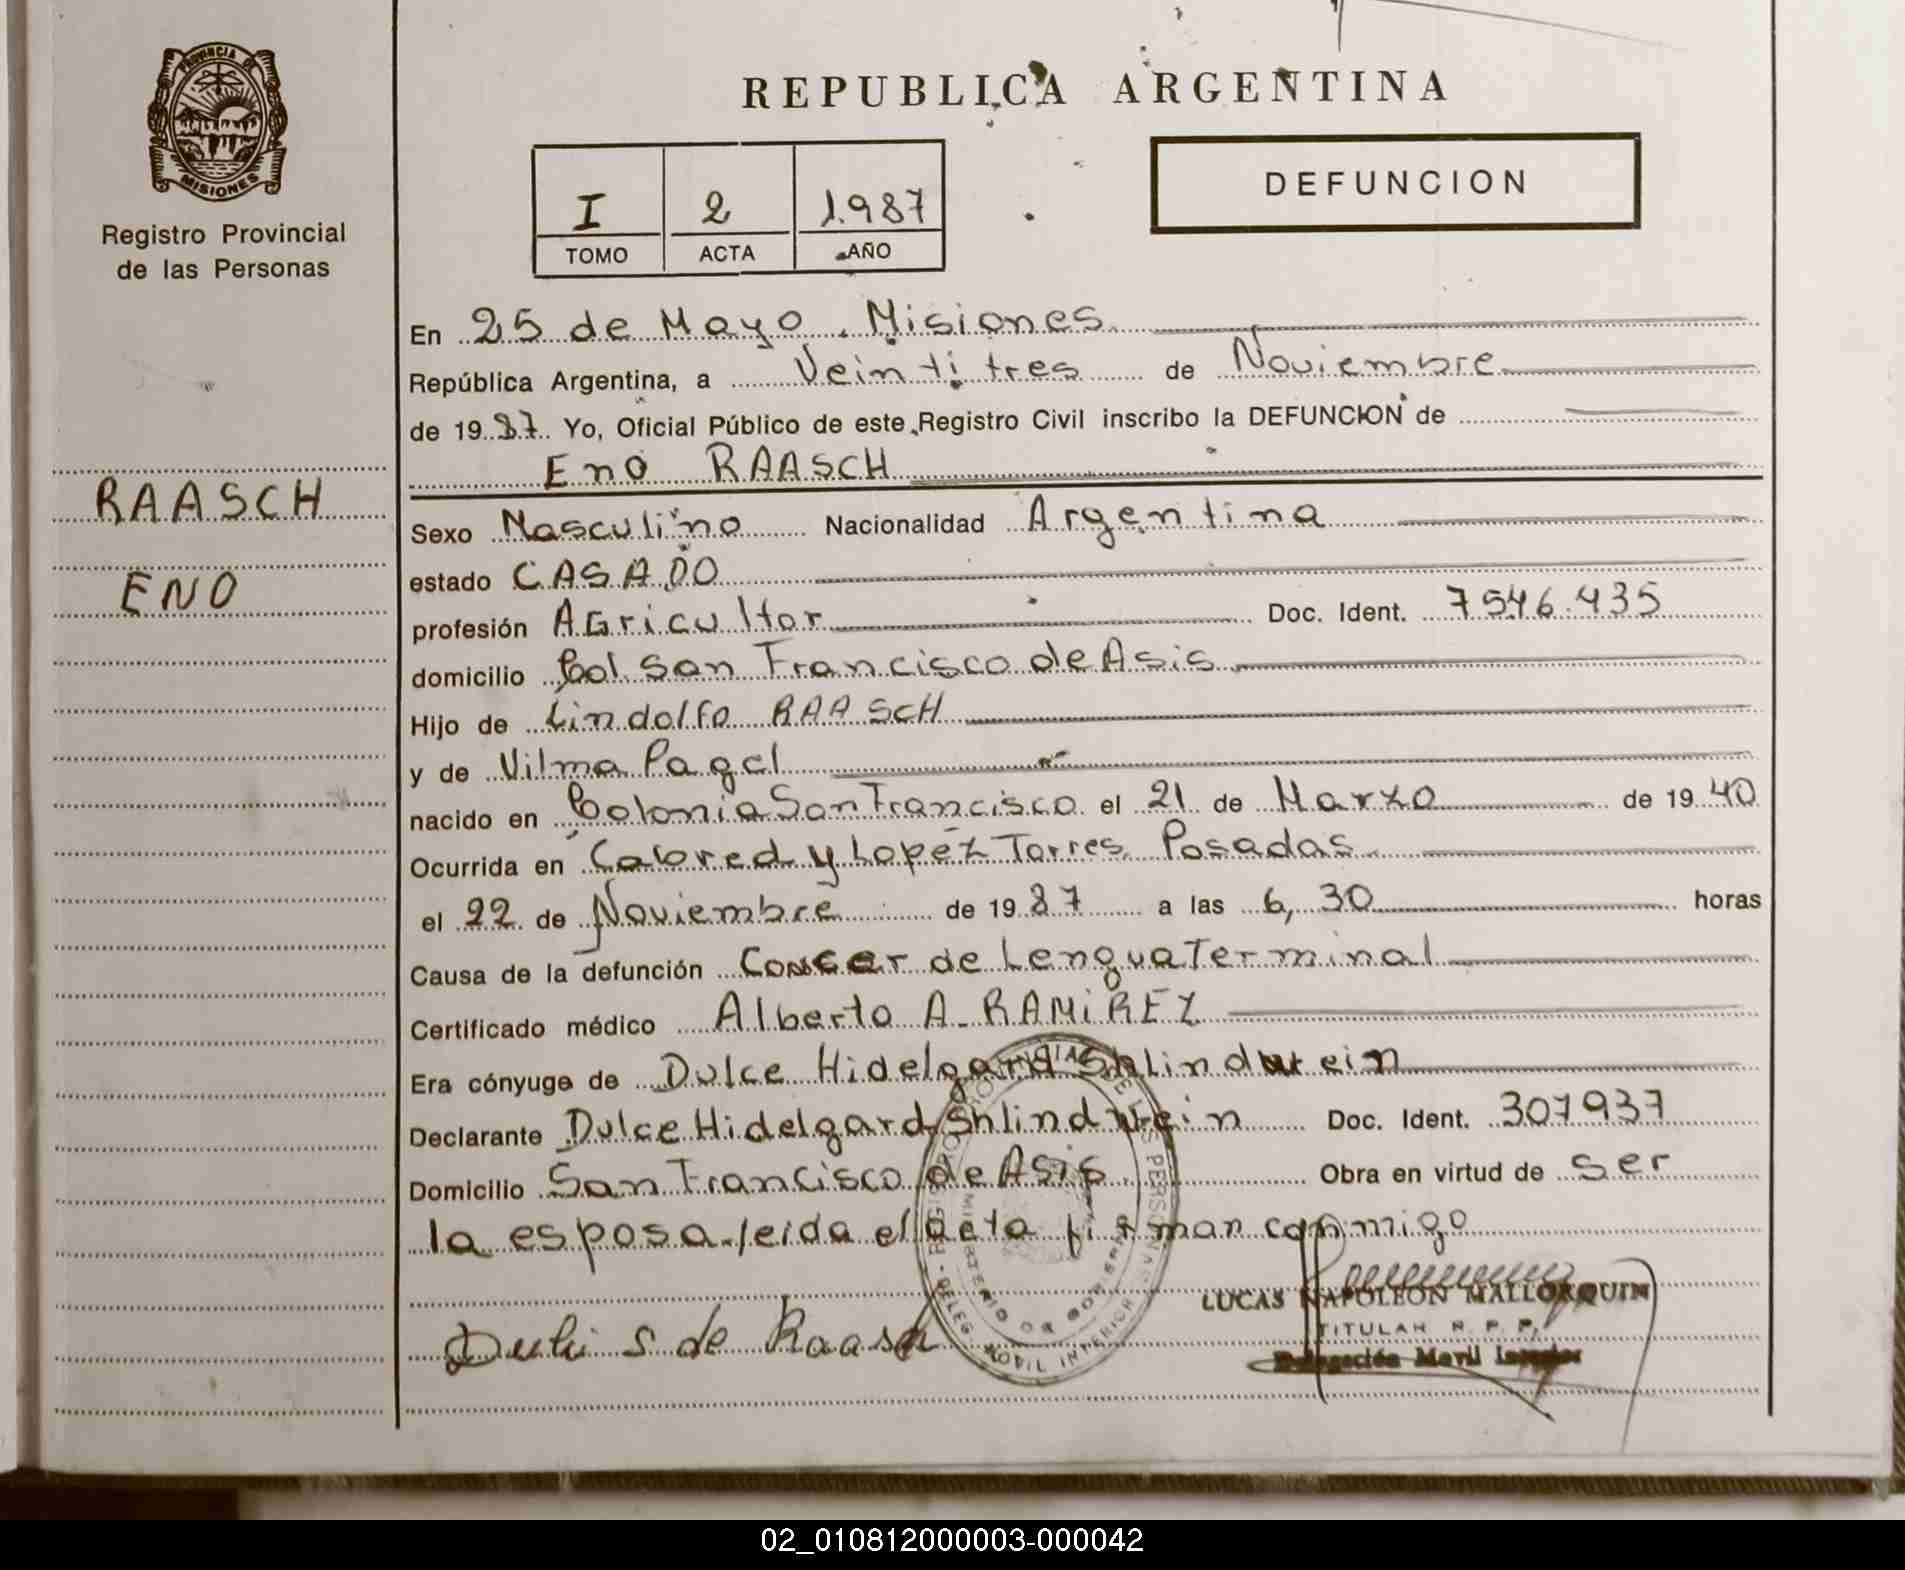 PROVINCIA DE
MISIONES
Registro Provincial
de las Personas
RAASCH
ENO
REPUBLICA ARGENTINA
I 2 1.987
TOMO ACTA AÑO
DEFUNCION
En 25 de Mayo. Misiones
República Argentina, a Veintitres de Noviembre
de 1987 Yo, Oficial Público de este Registro Civil inscribo la DEFUNCION de
Eno RAASCH
Sexo Masculino Nacionalidad Argentina
estado CASADO
profesión AGricultor Doc. Ident. 7546.435
domicilio Col San Francisco de Asis
Hijo de Lindolfo RAASCH
y de Vilma Pagel
nacido en Colonia San Francisco el 21 de Marzo de 1940
Ocurrida en Cabred y Lopez Torres Posadas
el 22 de Noviembre de 1987 a las 6,30 horas
Causa de la defunción Concer de Lengua Terminal
Certificado médico Alberto A. RAMIREZ
Era cónyuge de Dulce Hidelgard Shlindwein
Declarante Dulce Hidelgard Shlindwein Doc. Ident. 307937
Domicilio San Francisco de Asis Obra en virtud de ser
la esposa leida el acta firman conmigo
LUCAS NAPOLEON MALLORQUIN
TITULAR R. P. P.
Delegación Movil Interior
S de Raasch
02_010812000003-000042